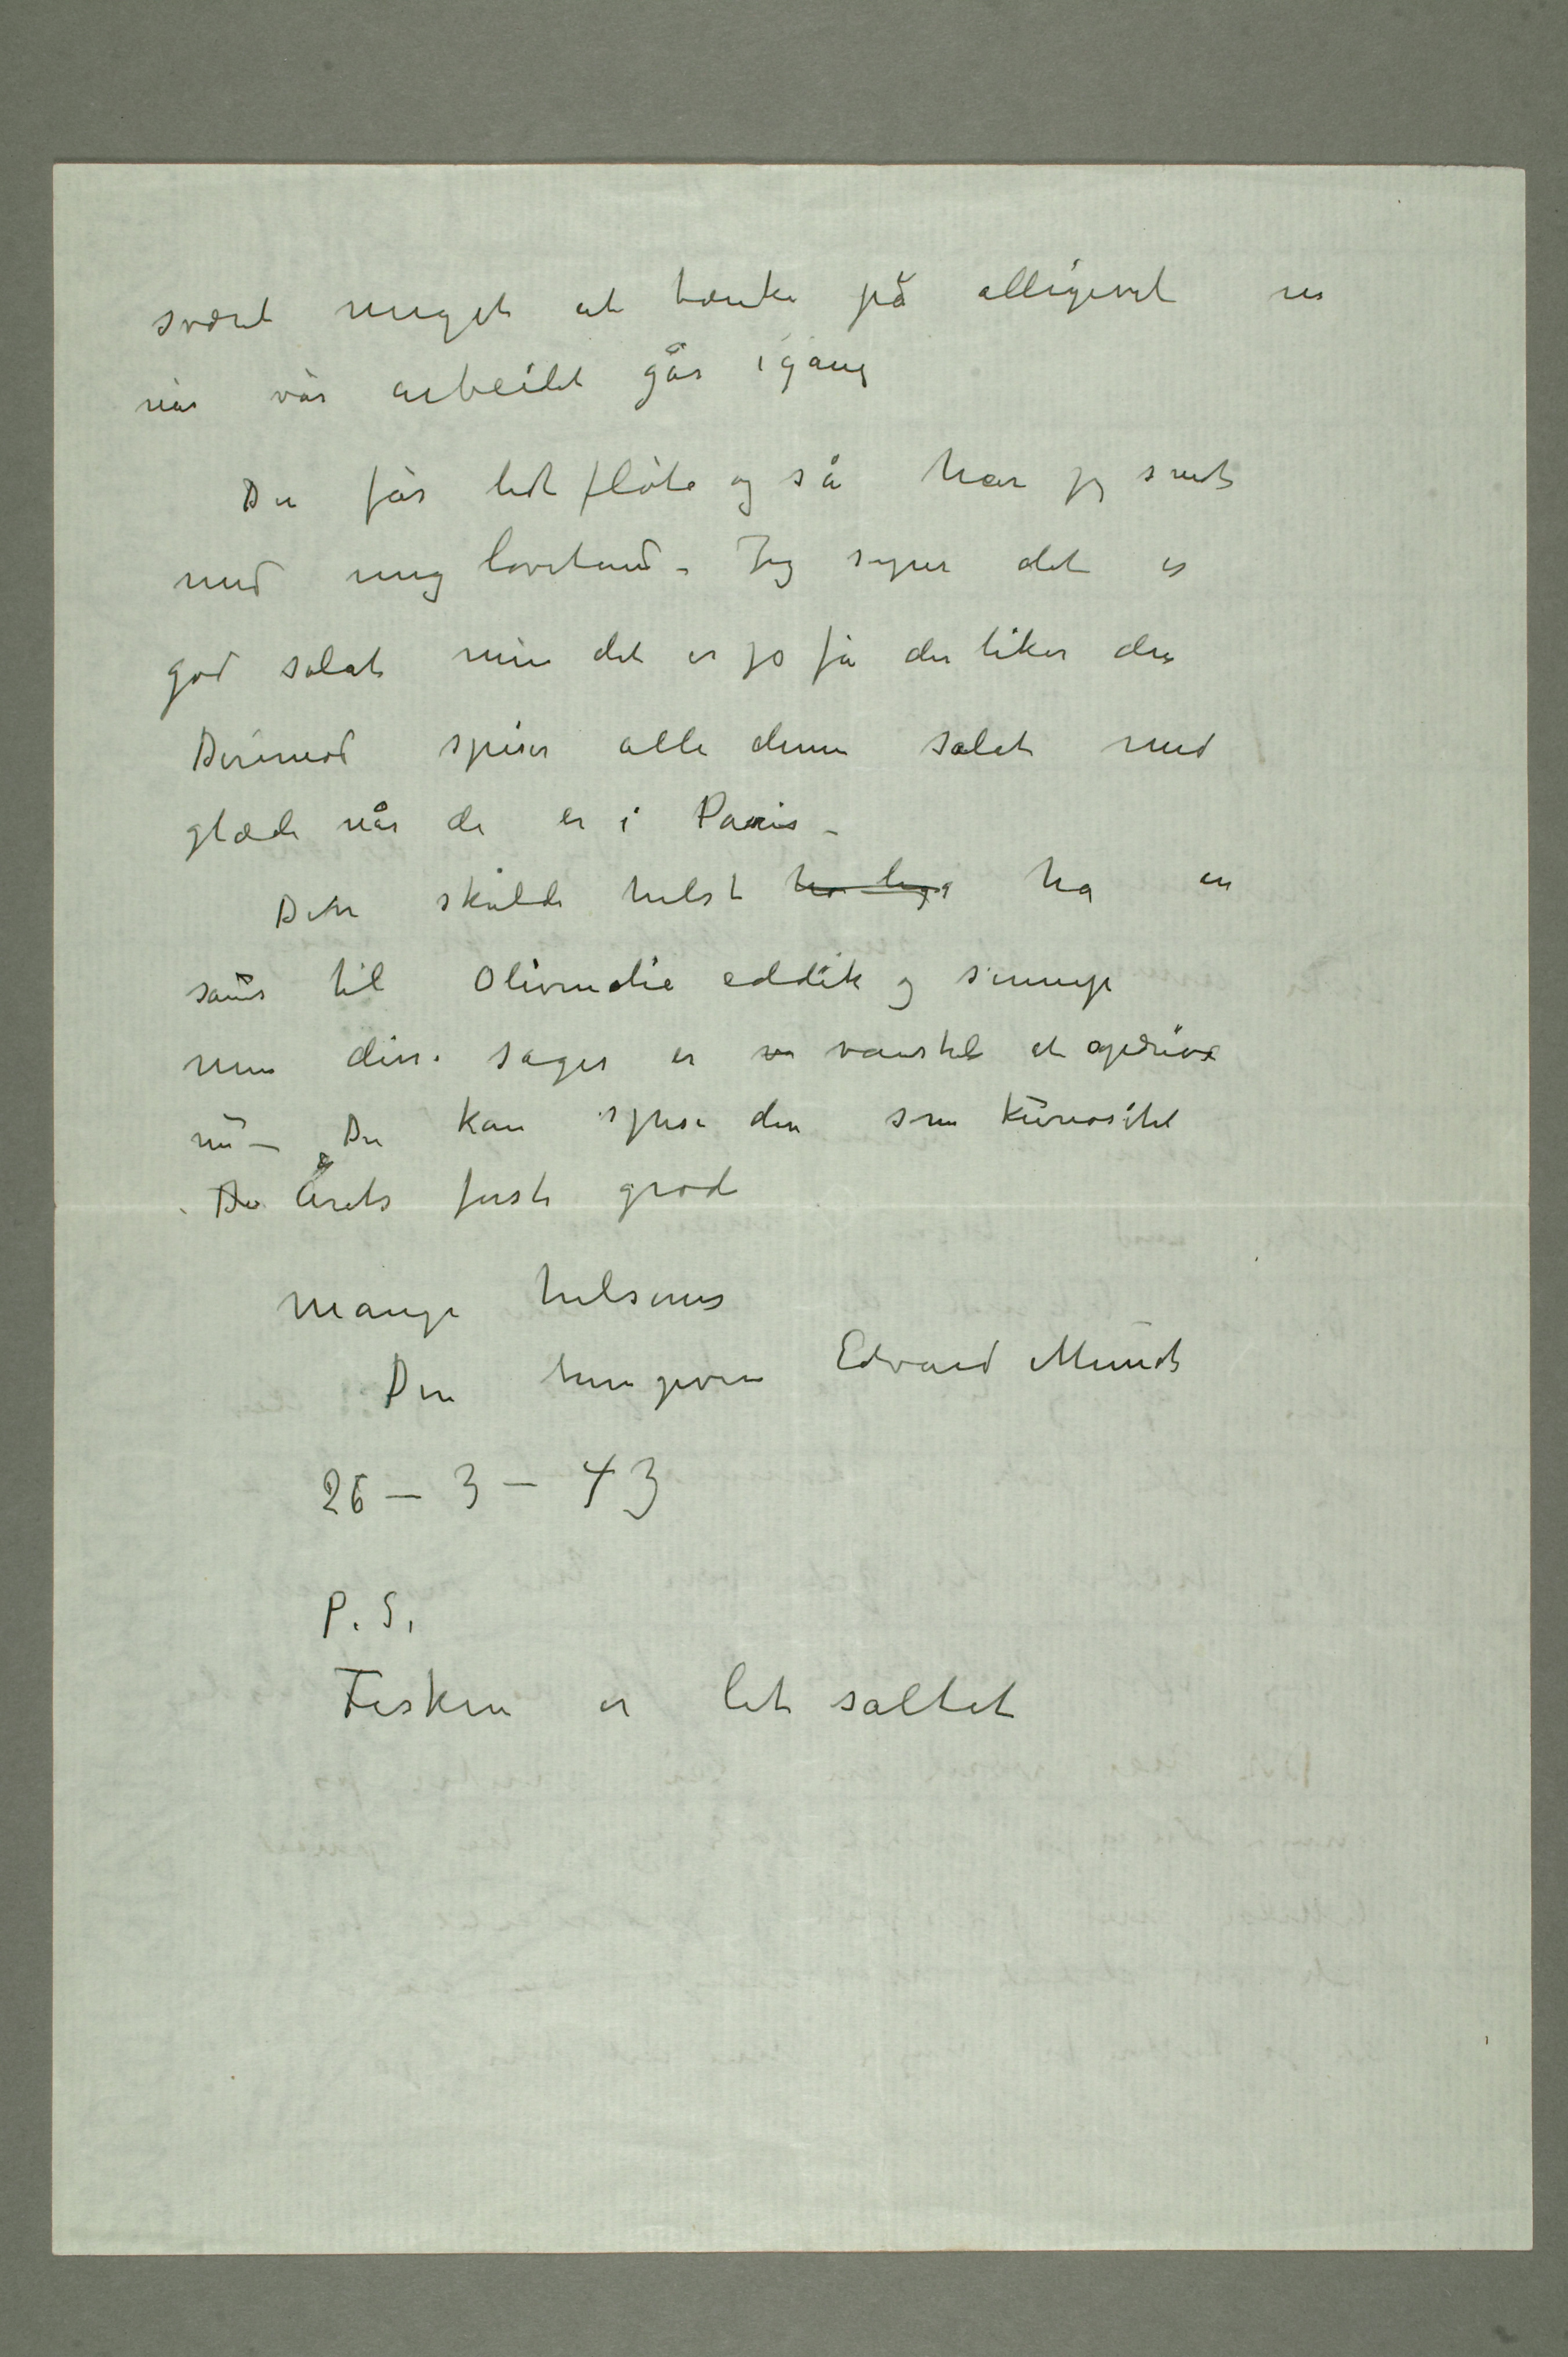 svært meget at tænke på alligevel nu
når vår arbeidet går igang
Du får lidt fløte og så har jeg sendt
med meg løvetand – Jeg synes det er
god salat men det er jo få der liker den
Derimod spiser alle denne salat med
glæde når de er i Paris –
Den skulde helst ha en
saus til Olivenolie eddik og sennep
men disse sager er vanskel at opdrive
nu – Du kan spise den som kuriositet
Årets første grøde
Mange hilsener
Din hengivne Edvard Munch
26 – 3 – 43
P. S.
Fisken er let saltet